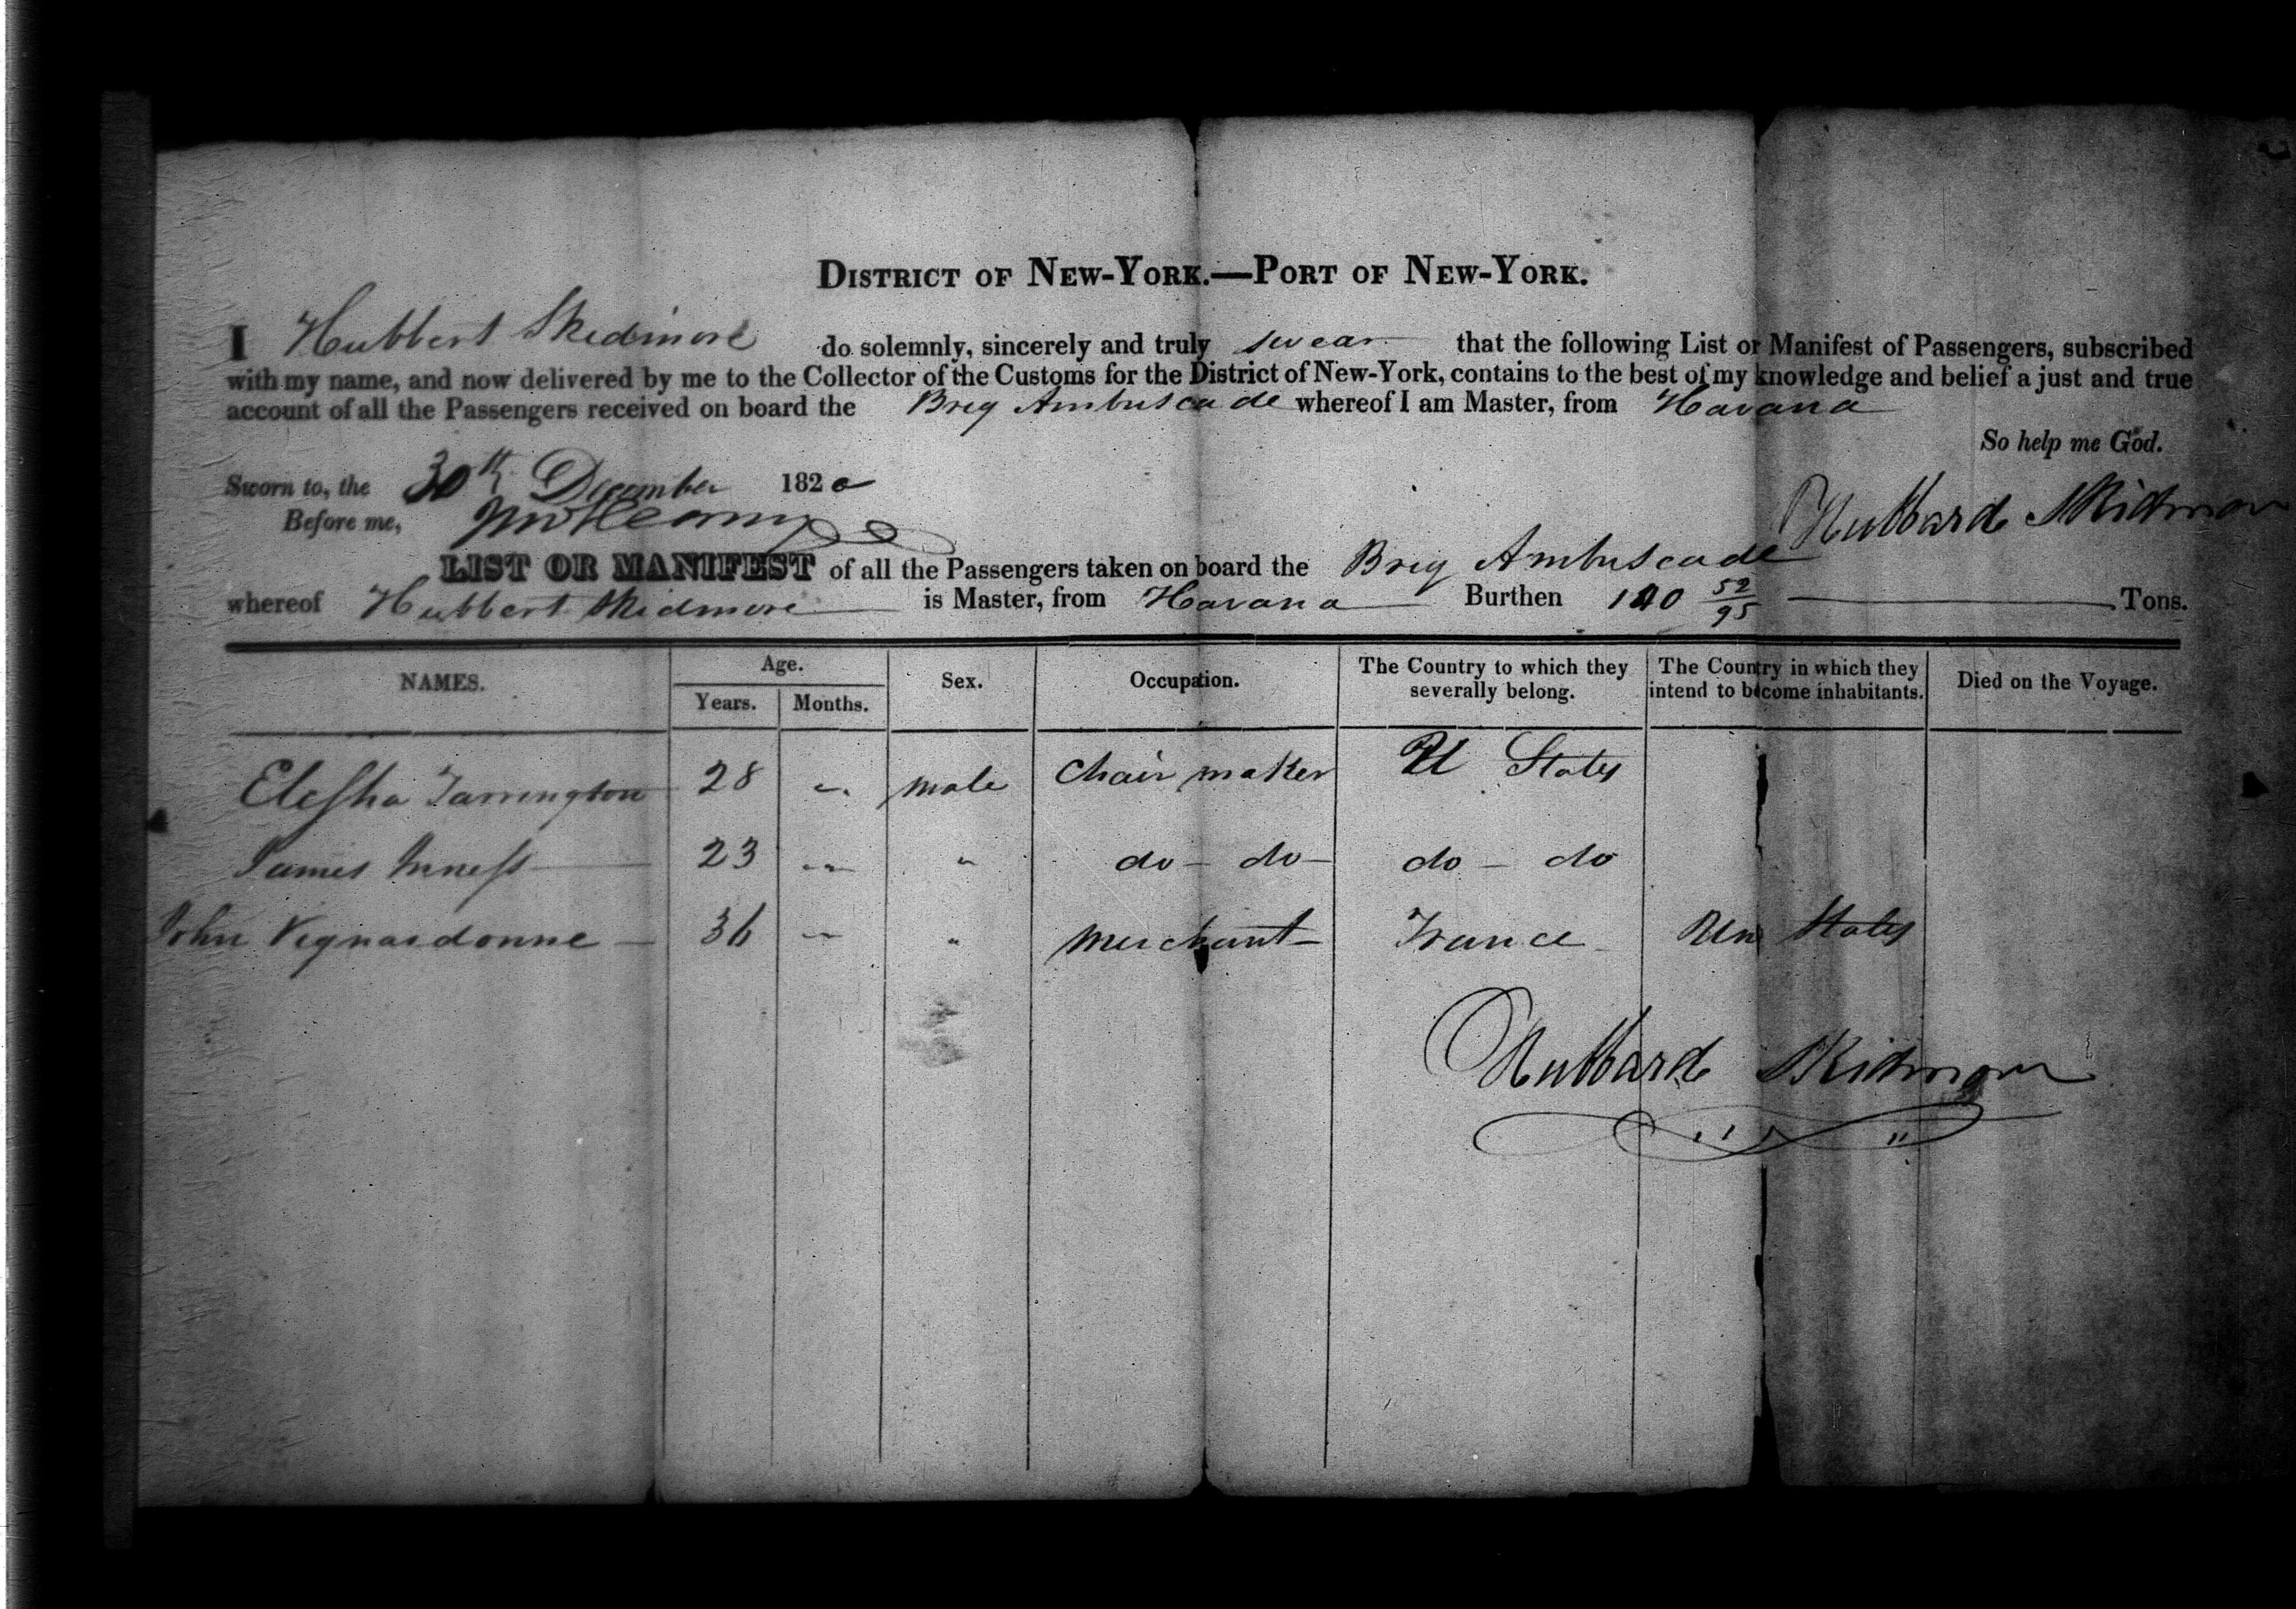 DISTRICT OF NEW-YORK.—PORT OF NEW-YORK.
I Hubbert Skidmore do solemnly, sincerely and truly swear that the following List or Manifest of Passengers, subscribed
with my name, and now delivered by me to the Collector of the Customs for the District of New-York, contains to the best of my knowledge and belief a just and true
account of all the Passengers received on board the Brig Ambuscade whereof I am Master, from Havana
So help me God.
Sworn to, the 30th December 1820
Before me,
Hubbard Skidmore
LIST OR MANIFEST of all the Passengers taken on board the Brig Ambuscade
whereof Hubbert Skidmore is Master, from Havana Burthen 140 52/95 Tons.
NAMES. Age. Years. Months. Sex. Occupation. The Country to which they severally belong. The Country in which they intend to become inhabitants. Died on the Voyage.
Elesha Farrington 28 " male Chair maker U States
James Inness 23 " " do - do do - do
John Vignardonne 36 " " Merchant France Un States
Hubbard Skidmore